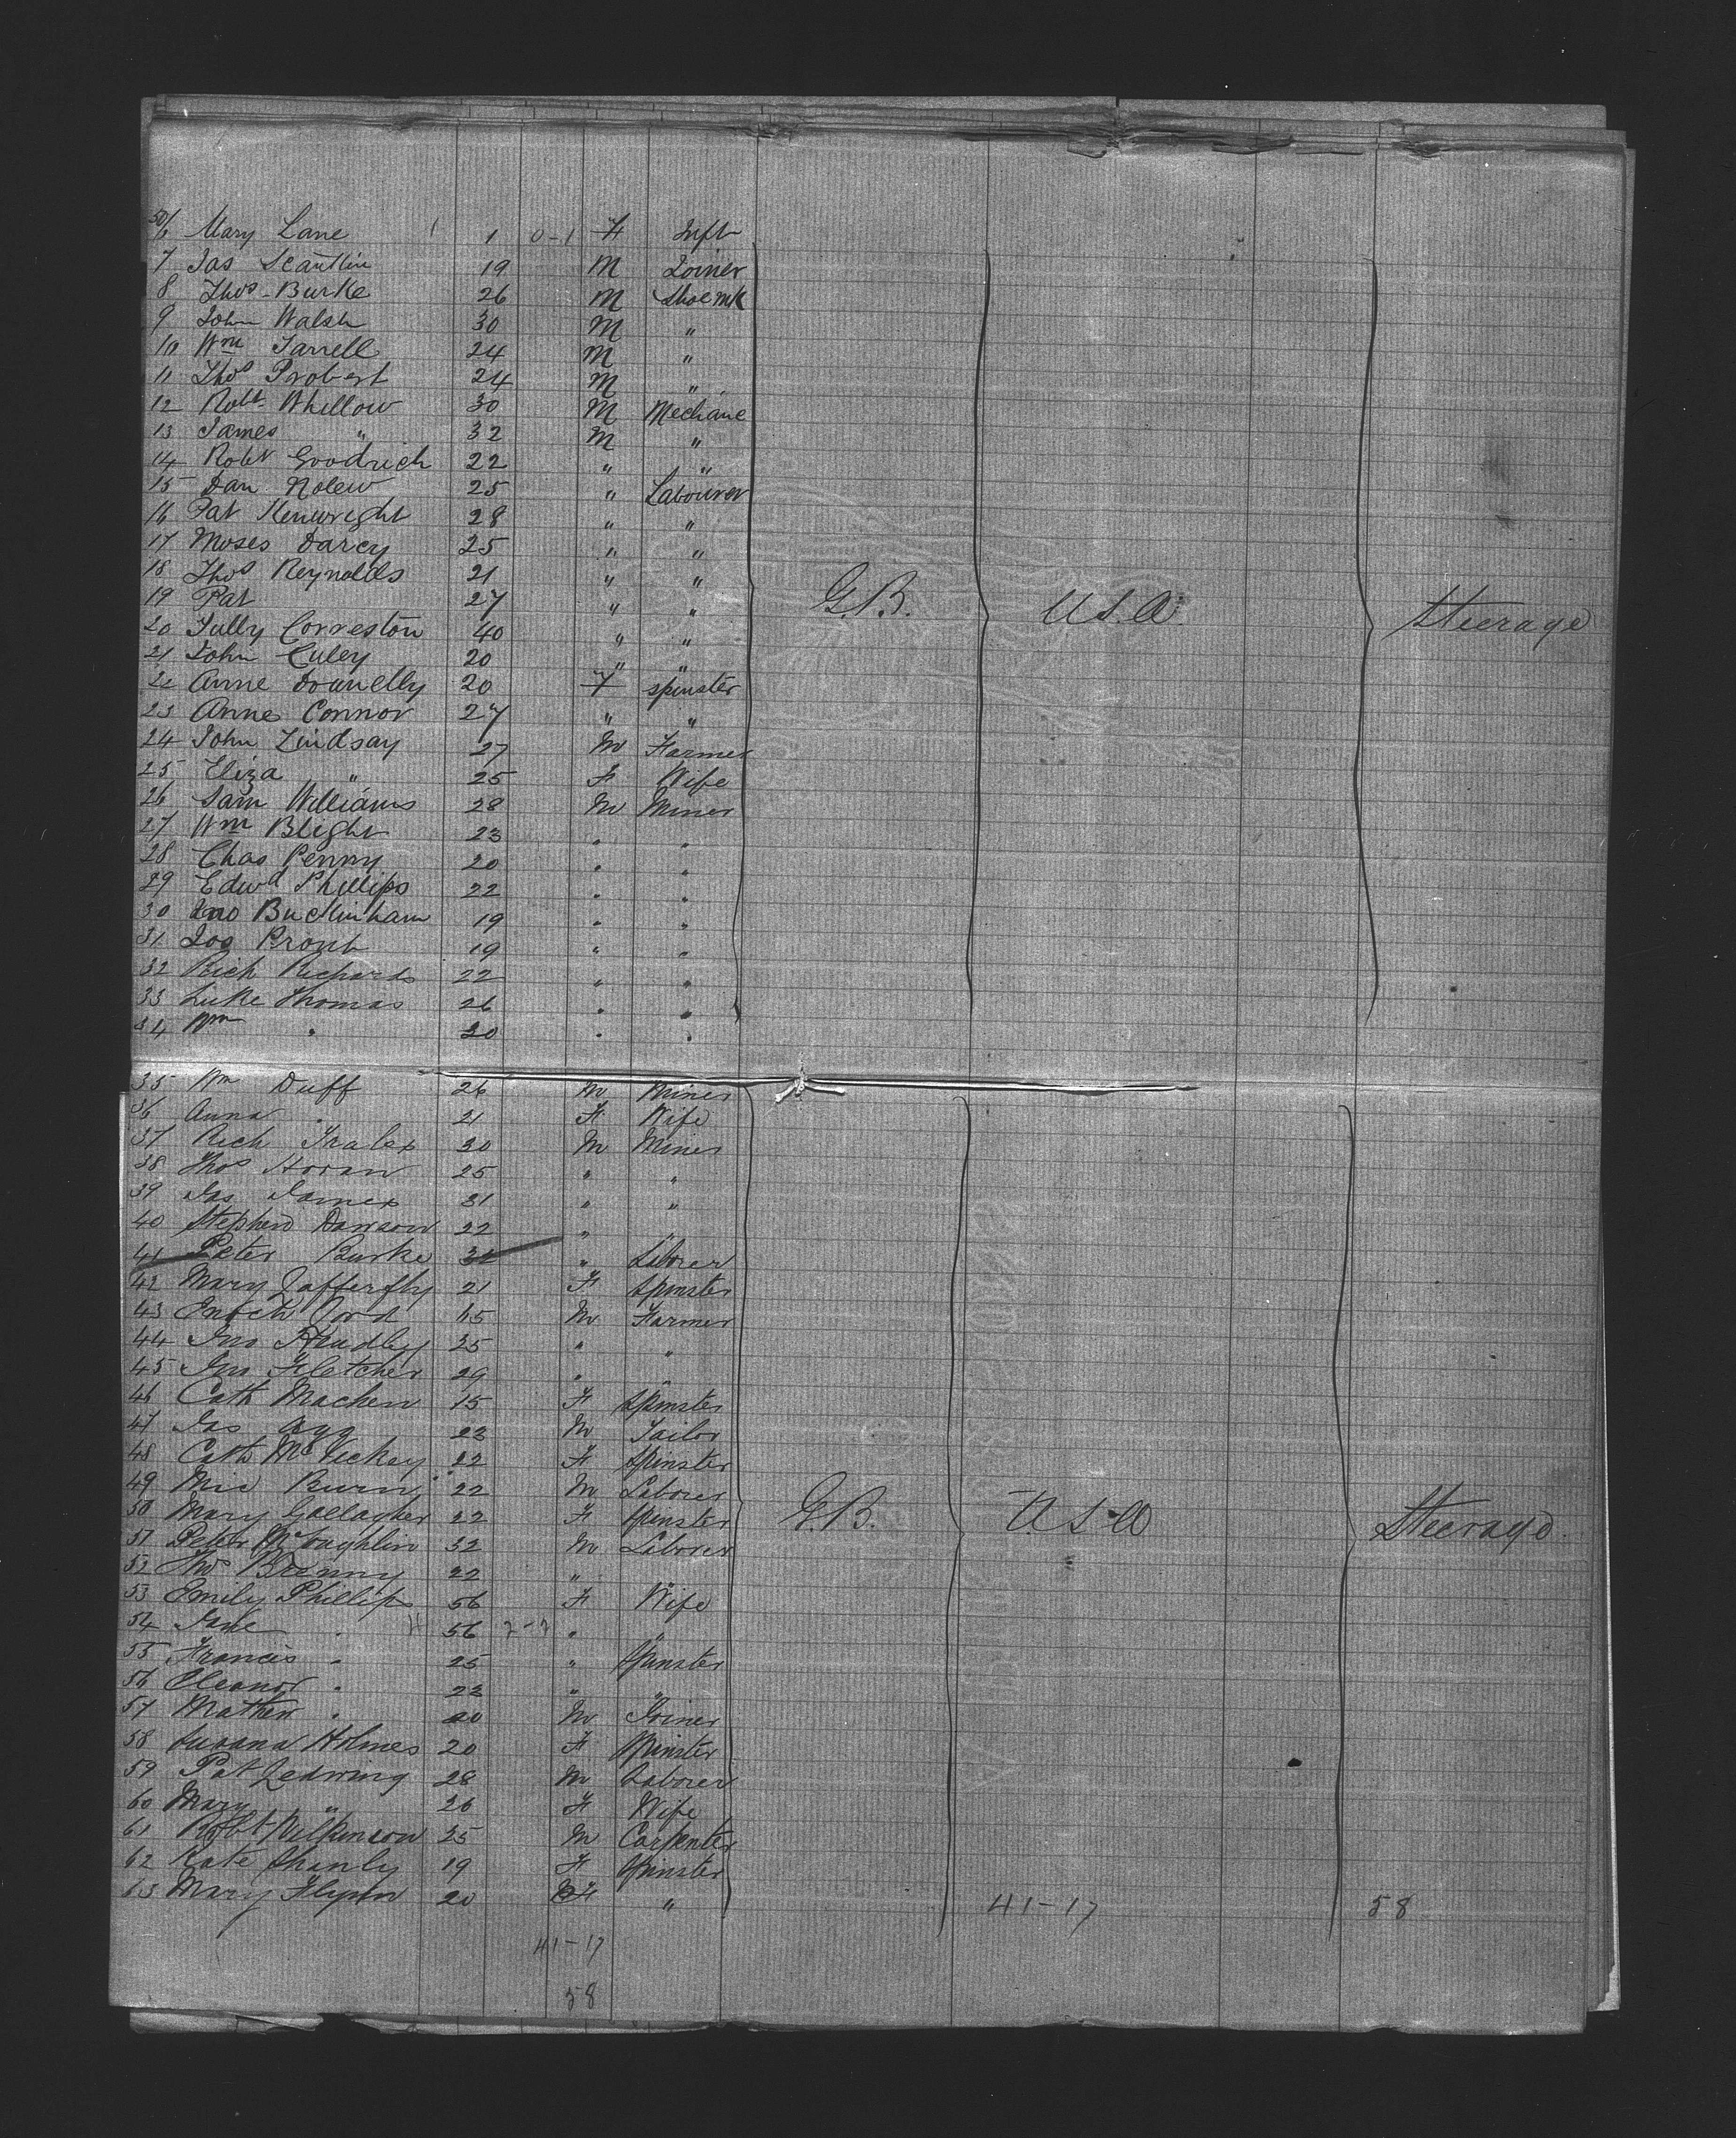 50/6 Mary Lane 1 1 0-1 F Inft
7 Jas Scantlin 19 M Joiner
8 Thos Burke 26 M Shoemk
9 John Walsh 30 M "
10 Wm Farrell 24 M "
11 Thos Probert 24 M "
12 Robt Whillow 30 M Mechanc
13 James " 32 M "
14 Robt Goodrich 22 " "
15 Dan Nolew 25 " Labourer
16 Pat Kenwright 28 " "
17 Moses Darcy 25 " "
18 Thos Reynolds 21 " "
19 Pat 27 " " G.B. U.S.A. Steerage
20 Tully Correston 40 " "
21 John Culey 20 " "
22 Anne Donnelly 20 F spinster
23 Anne Connor 27 " "
24 John Lindsay 27 M Farmer
25 Eliza " 25 F Wife
26 Sam Williams 28 M Miner
27 Wm Blight 23 " "
28 Chas Penny 20 " "
29 Edwd Phillips 22 " "
30 Jno Buckinham 19 " "
31 Jos Pront 19 " "
32 Rich Richards 22 " "
33 Luke Thomas 26 " "
34 Wm " 20 " "
35 Wm Duff 26 M Miner
36 Anna " 21 F Wife
37 Rich 30 M Miner
38 Thos Horan 25 " "
39 Jas James 31 " "
40 Stephen Dawson 22 " "
41 Peter Burke 32 " Laborer
42 Mary Lafferfhy 21 F Spinster
43 Enoch Ford 45 M Farmer
44 Jno Headley 35 " "
45 Jno Fletcher 29 " "
46 Cath Machen 15 F Spinster
47 Jas Agg 23 M Tailor
48 Cath McVickey 22 F Spinster
49 Mic Burn 22 M Laborer
50 Mary Gallagher 22 F Spinster G.B. U.S.A Steerage
51 Peter McLoughlin 32 M Laborer
52 Thos Brenny 22 " "
53 Emily Phillips 56 F Wife
54 Jane " 56 7-7 " "
55 Francis " 25 " Spinster
56 Eleanor " 23 " "
57 Mathew " 20 M Joiner
58 Susana Holmes 20 F Spinster
59 Pat Ledwing 28 M Laborer
60 Mary " 26 F Wife
61 Robt Wilkinson 25 M Carpenter
62 Kate Shanly 19 F Spinster
63 Mary Flynn 20 F " 41-17 58
41-17
58